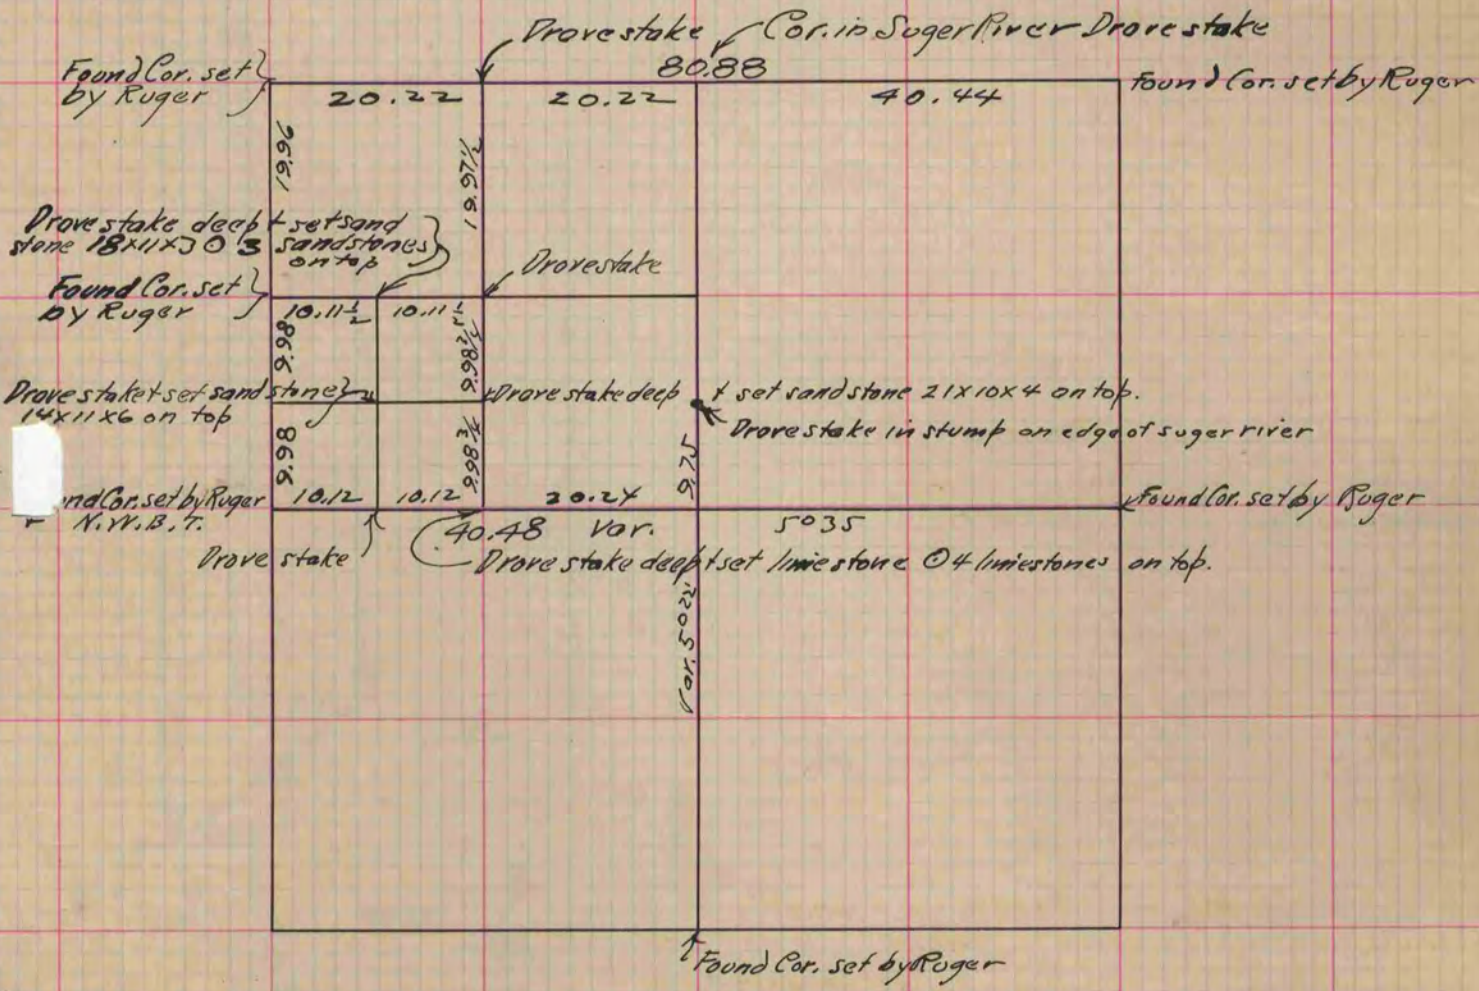 Drove stake Cor. in Suger River Drove stake
80.88
Found Cor. set
by Ruger
20.22 20.22 40.44
Found Cor. set by Ruger
19.96
19.97 1/2
Drove stake deep + set sand
stone 18x11x3 ⊙ 3 sandstones
on top
Found Cor. set
by Ruger
Drove stake
10.11 1/2 10.11 1/2
9.98
Drove stake + set sand stone
14x11x6 on top
Drove stake deep + set sandstone 21x10x4 on top.
Drove stake in stump on edge of suger river
9.98
9.98 3/4
9.75
nd Cor. set by Ruger
N.W.B.T.
10.12 10.12 20.24
Found Cor. set by Ruger
40.48 Var. 5°35
Drove stake
Drove stake deep + set limestone ⊙ 4 limestones on top.
Var. 5°22'
Found Cor. set by Ruger